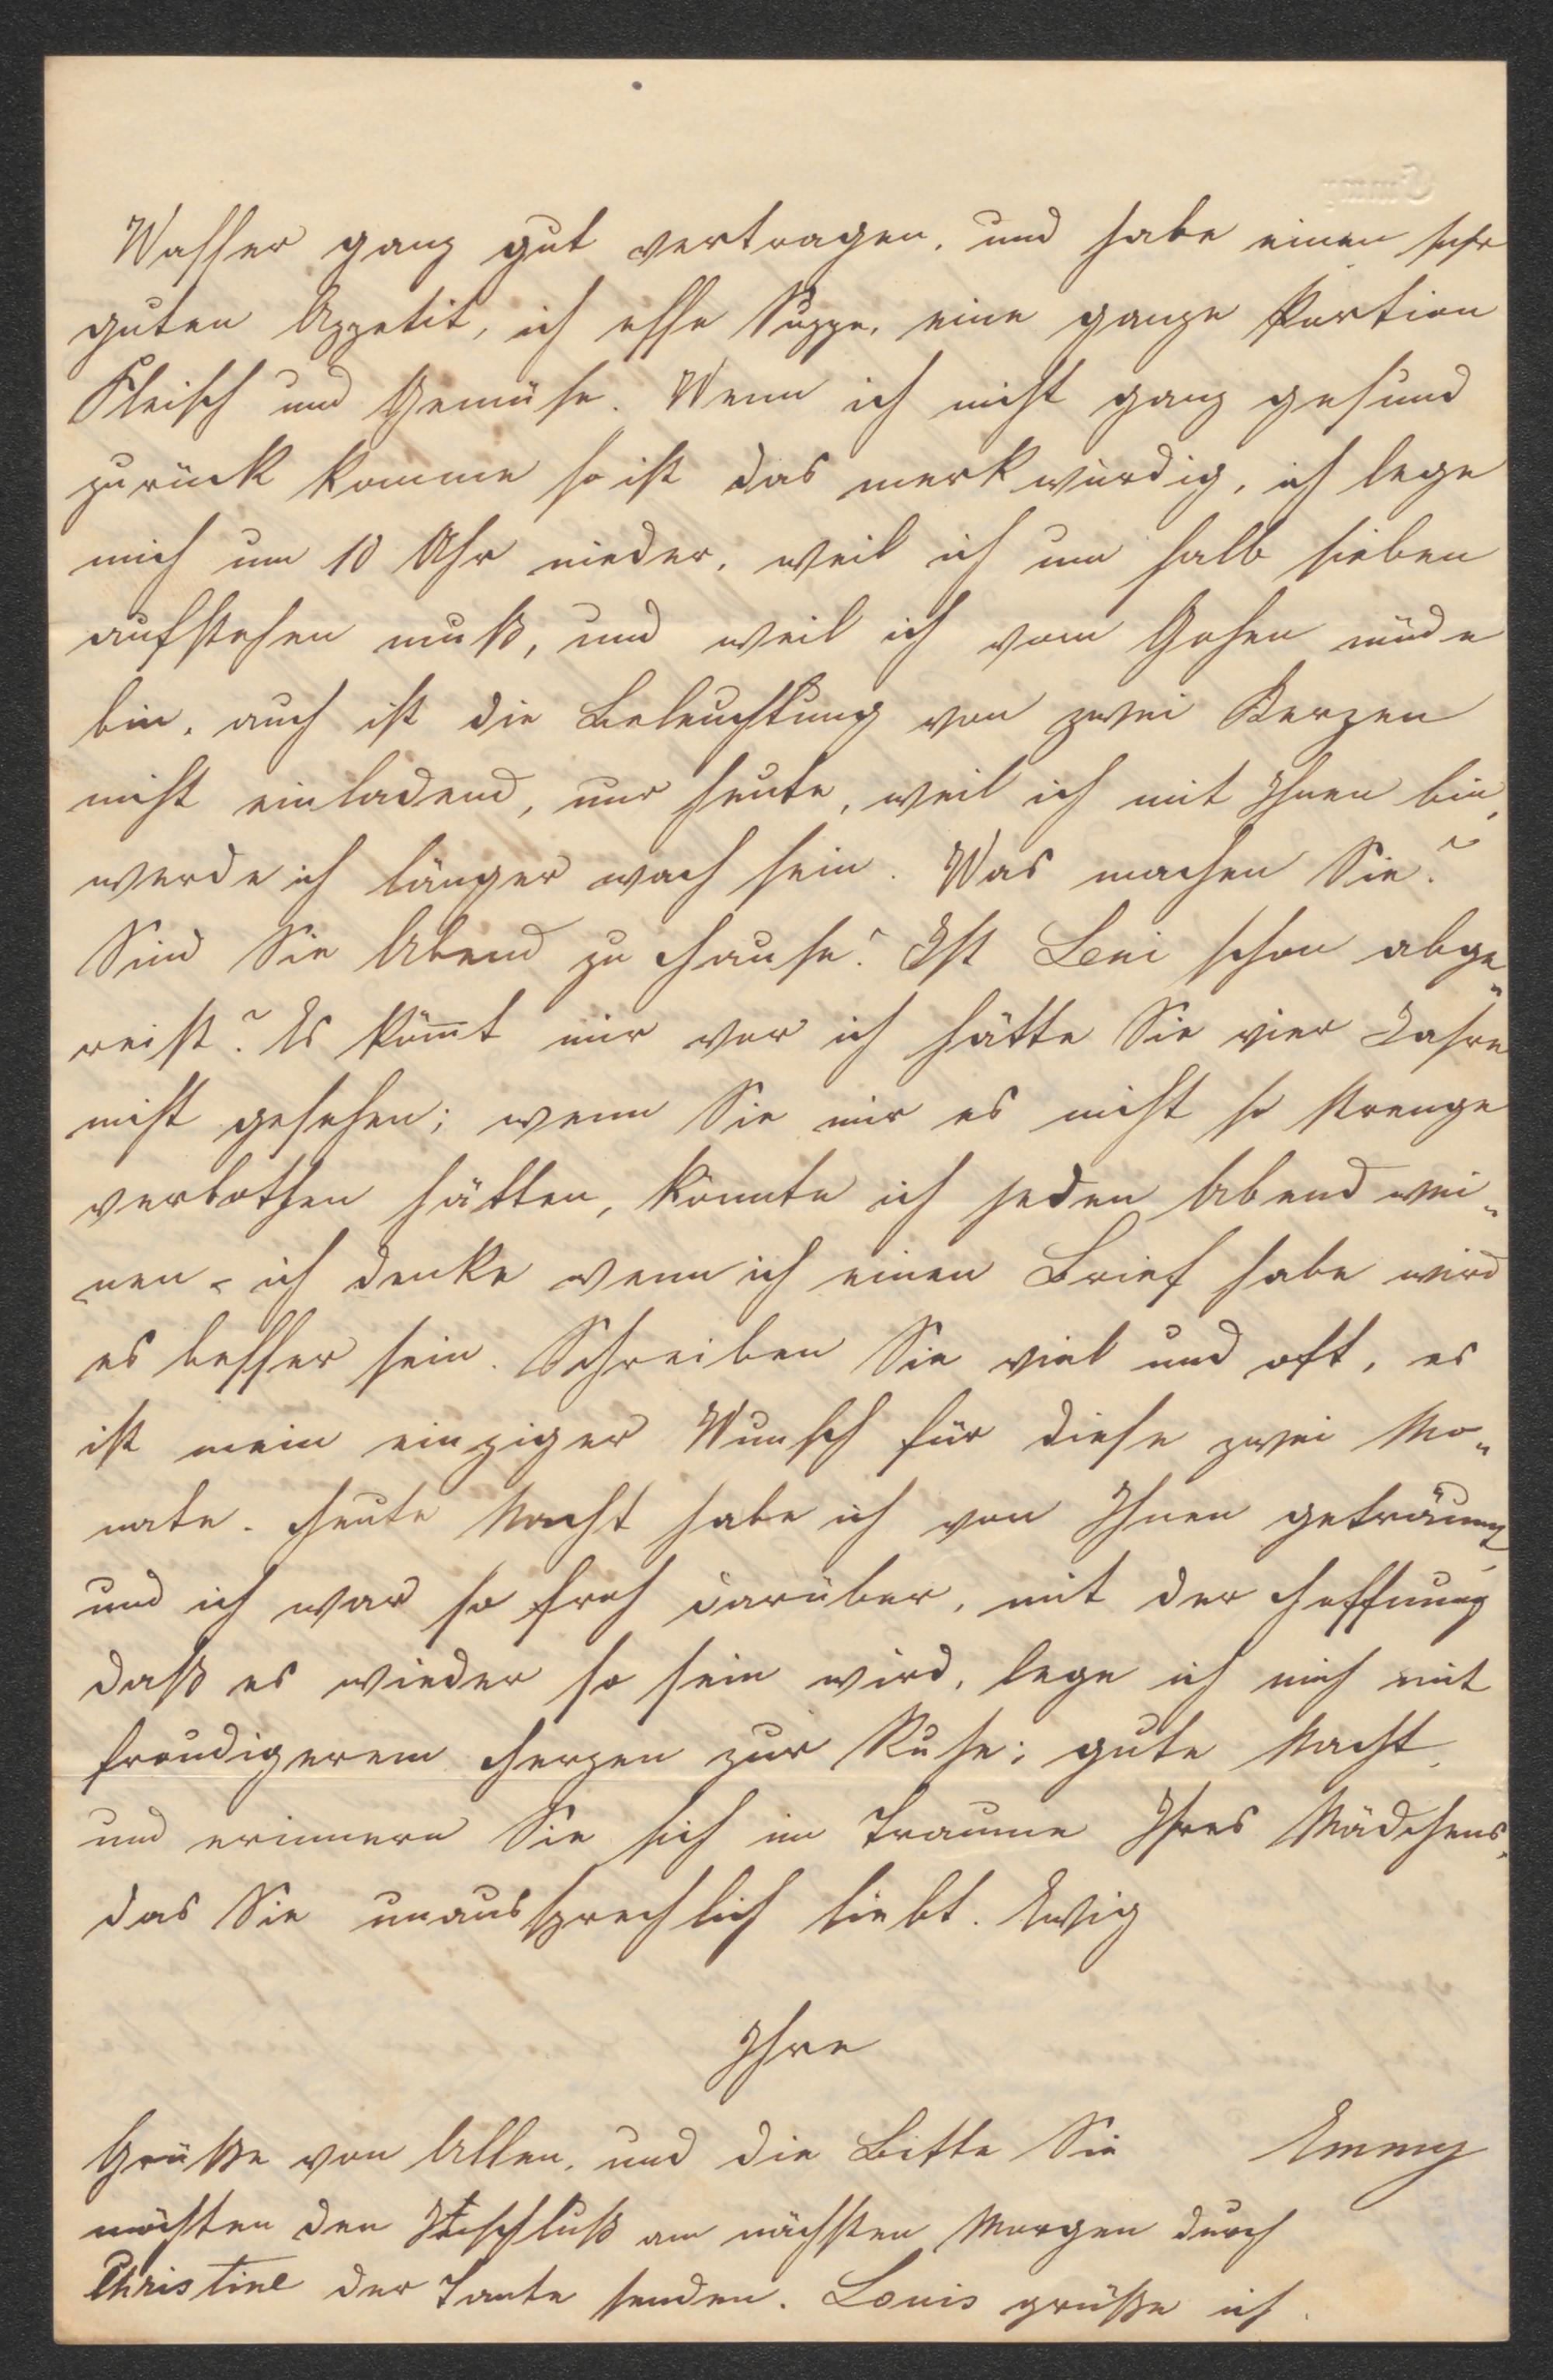 Wasser ganz gut vertragen, und habe einen sehr
guten Appetit, ich esse Suppe, eine ganze Portion
Fleisch und Gemüse. Wenn ich nicht ganz gesund
zurück komme so ist das merkwürdig, ich lege
mich um 10 Uhr nieder, weil ich um halb sieben
aufstehen muß, und weil ich vom Gehen müde
bin, auch ist die Beleuchtung von zwei Kerzen
nicht einladend, nur heute, weil ich mit Ihnen bin,
werde ich länger wach sein. Was machen Sie?
Sind Sie Abend zu Hause? Ist Leni schon abge„
reist? Es kömt mir vor ich hätte Sie vier Jahre
nicht gesehen; wenn Sie mir es nicht so strenge
verbothen hätten, könnte ich jeden Abend wei„
nen - ich denke wenn ich einen Brief habe wird
es besser sein. Schreiben Sie viel und oft, es
ist mein einziger Wunsch für diese zwei Mo„
nate. Heute Nacht habe ich von Ihnen geträumt,
und ich war so froh darüber, mit der Hoffnung
daß es wieder so sein wird, lege ich mich mit
freudigerem Herzen zur Ruhe; gute Nacht,
und erinnern Sie sich im Traume Ihres Mädchens,
das Sie unaussprechlich liebt. Ewig
Ihre
Emmy
Grüße von Allen, und die Bitte Sie
möchten den am nächsten Morgen durch
Christine der Tante senden. Louis grüße ich.